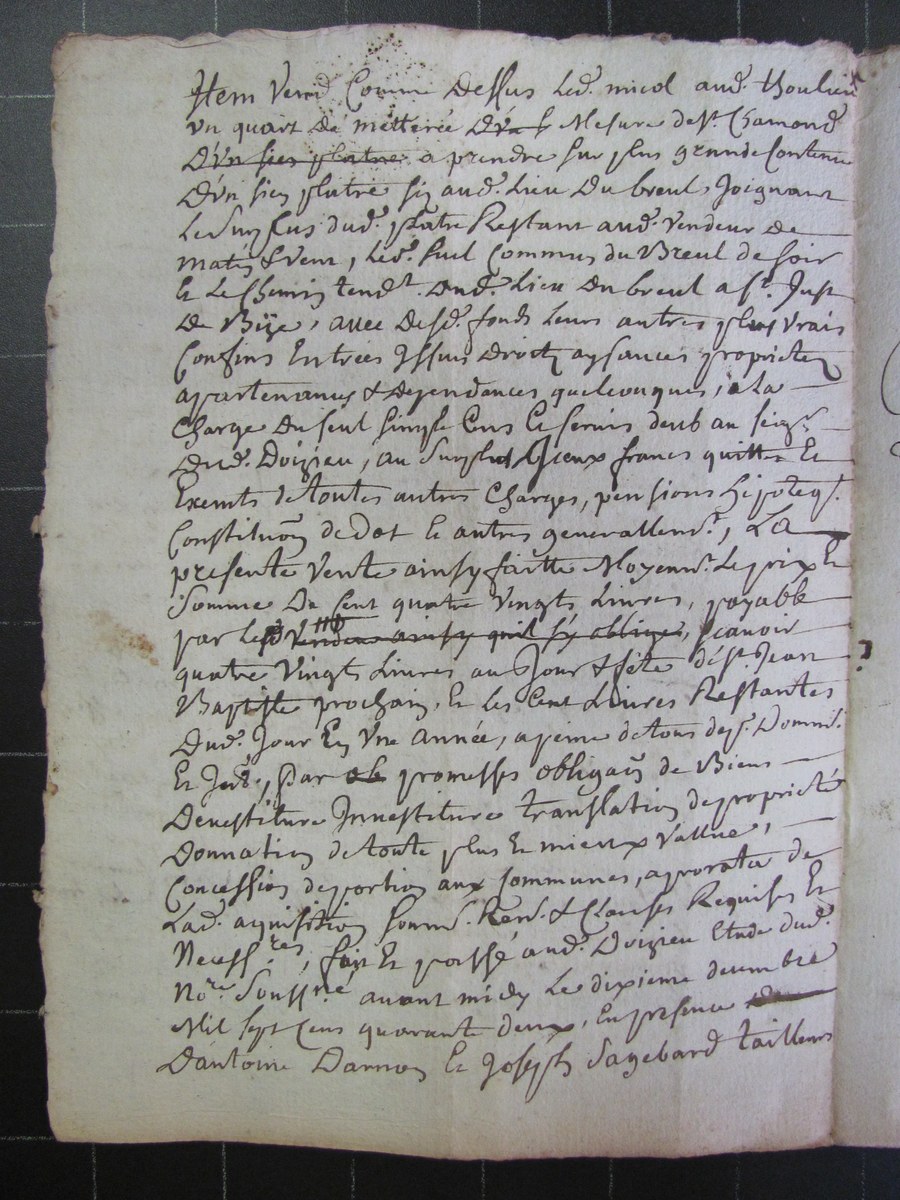 Item Vend Comme Dessus Led. micol aud. thoulieu
Un quart De metteree Mesure de St. Chamond
D'un sien platre a prendre sur plus grande Contenue
D'un sien platre sis aud. Lieu Du breul, Joignant
Le Surplus dud. platre Restant aud. Vendeur de
matin & Vent, Led. Suel Commun du Breul de soir
Et Le Chemin tendt. Dud. Lieu Du breul a St. Just
De , avec Desd. fonds Leurs autres plus vrais
Confins Entrées Issues Droits aysances proprietes
apartenances & Dependances quelconques, a La
Charge Du seul simple Cens Et servis deub au seigr.
Dud. Doizieu, au Surplus francs quittes Et
Exempts de toutes autres Charges, pensions hipoteqs.
Constituõn de dot Et autres generallemt., La
presente Vente ainsy faitte Moyennt. Le prix Et
Somme De Cent quatre Vingts Livres, payable
par Led Vendeur ainsy quil s'y oblige, scauoir
quatre Vingts Livres au Jour & fête de St. Jean
Baptiste prochain, Et les Cent Livres Restantes
Dud. Jour En Une Année, a peine de tous Domm.
Et , par promesses obligaõn de Biens
Deuestiture Inuestiture translation de proprieté
Donnation de toute plus Et mieux Vallue,
Concession de portion aux Communes, a prorata de
Lad. aquisition & Clauses Requises Et
Necessres., fait Et passé aud. Doizieu Etude dud.
Nore. Soussne. avant midy Le dixieme decembre
Mil sept Cens quarante deux, En presence
D'antoine Et Joseph Sagebard tailleurs